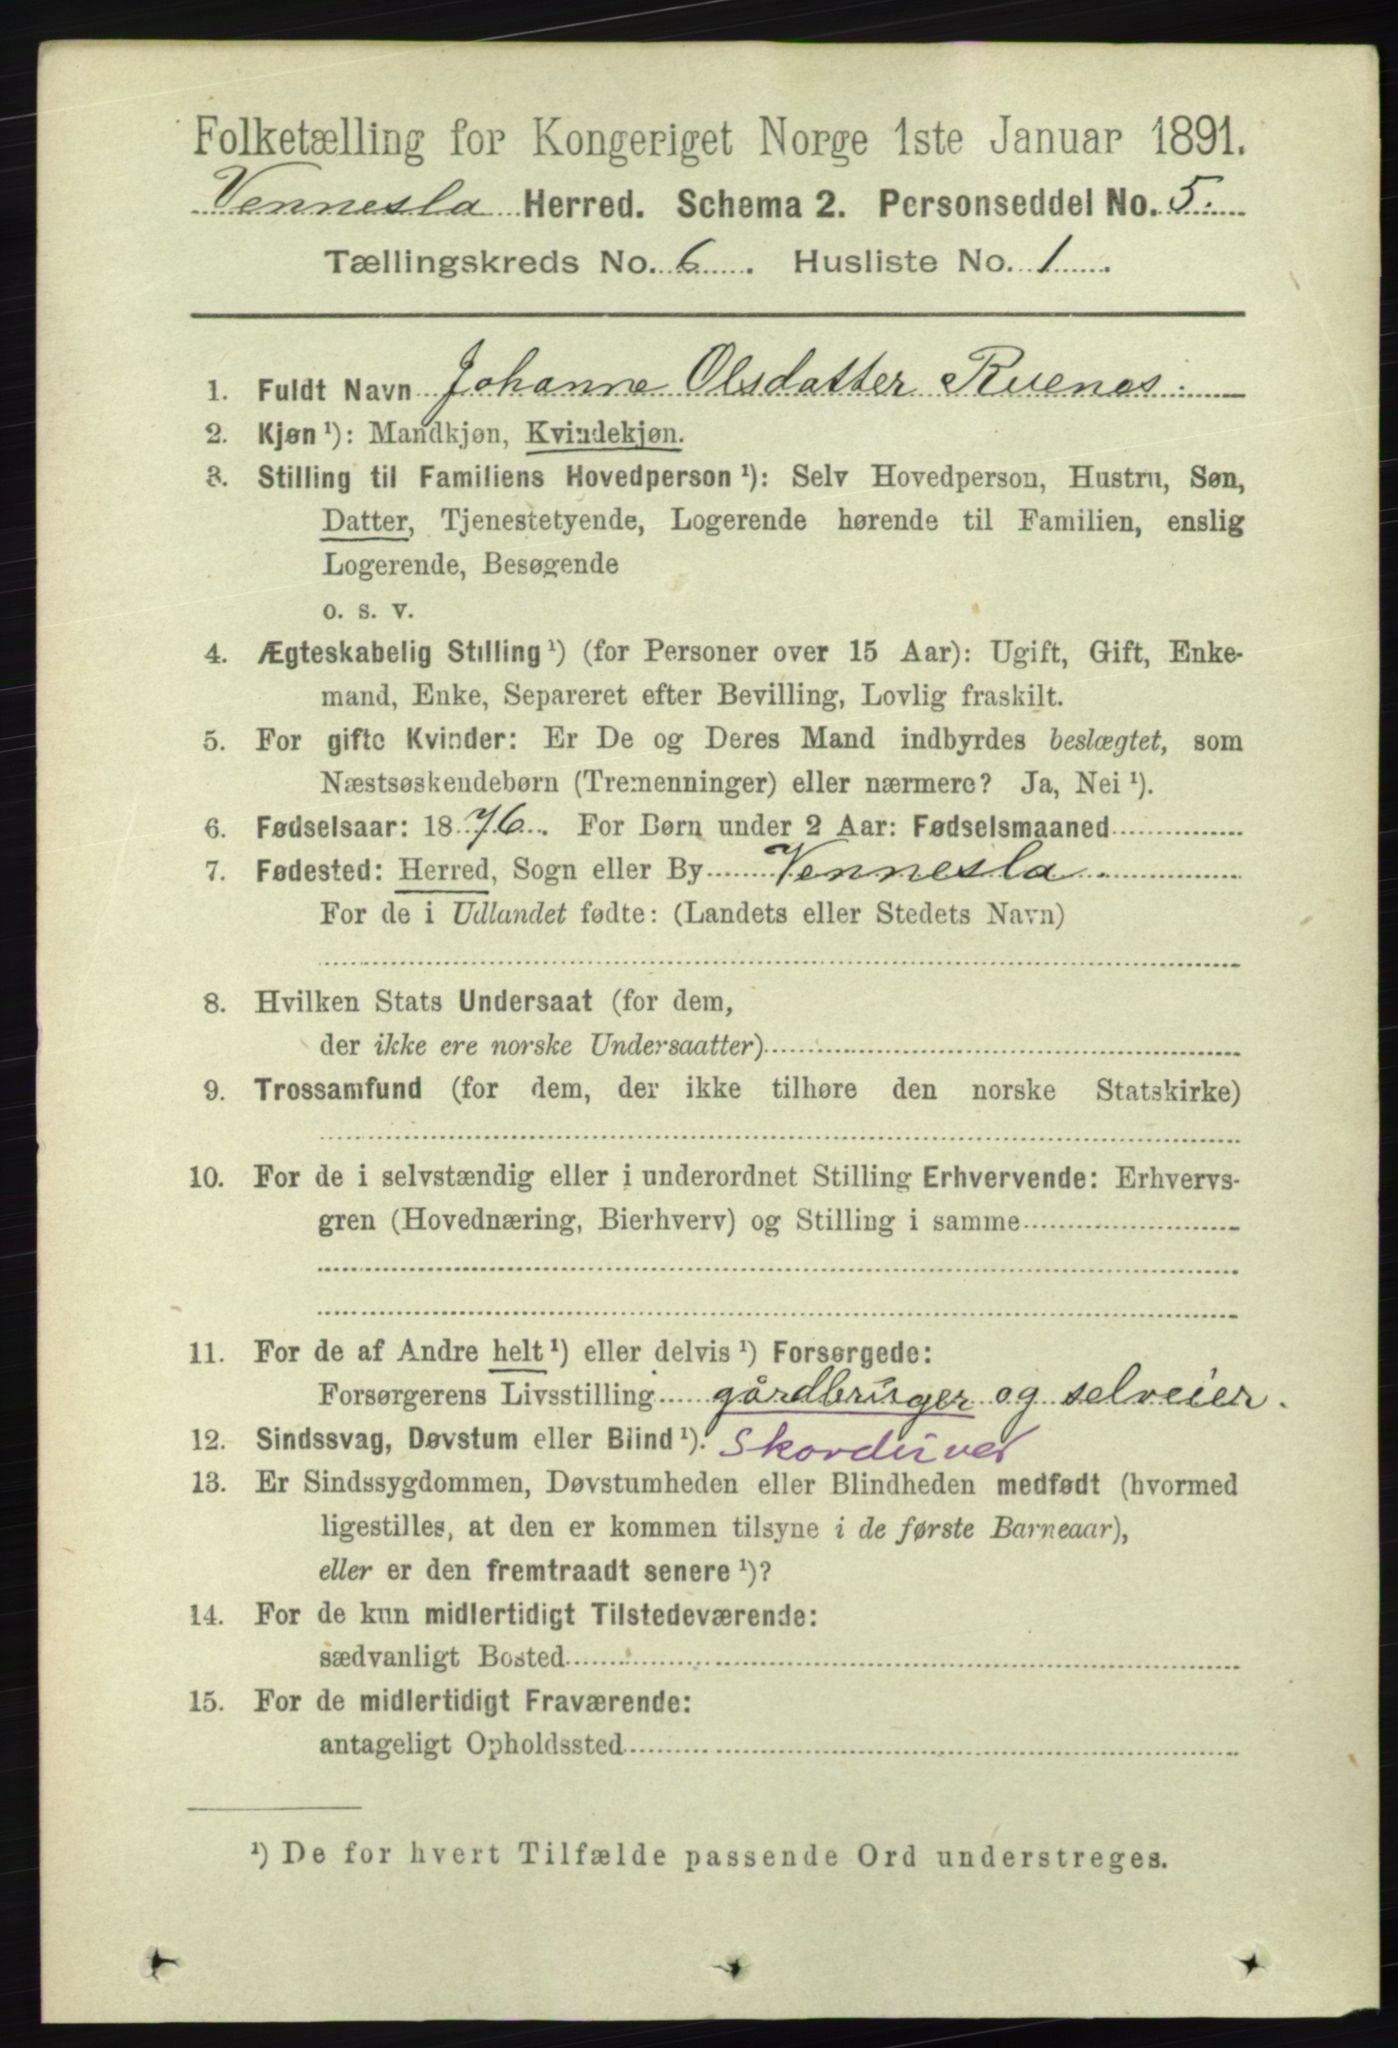 Folketælling for Kongeriget Norge 1ste Januar 1891.
Vennesla Herred. Schema 2. Personseddel No. 5.
Tællingskreds No. 6. Husliste No. 1.
1. Fuldt Navn Johanne Olsdatter Ruenes.
2. Kjøn ¹): Mandkjøn, Kvindekjøn.
3. Stilling til Familiens Hovedperson ¹): Selv Hovedperson, Hustru, Søn,
Datter, Tjenestetyende, Logerende hørende til Familien, enslig
Logerende, Besøgende
o. s. v.
4. Ægteskabelig Stilling ¹) (for Personer over 15 Aar): Ugift, Gift, Enke-
mand, Enke, Separeret efter Bevilling, Lovlig fraskilt.
5. For gifte Kvinder: Er De og Deres Mand indbyrdes beslægtet, som
Næstsøskendebørn (Tremenninger) eller nærmere? Ja, Nei ¹).
6. Fødselsaar: 1876. For Børn under 2 Aar: Fødselsmaaned
7. Fødested: Herred, Sogn eller By Vennesla.
For de i Udlandet fødte: (Landets eller Stedets Navn)
8. Hvilken Stats Undersaat (for dem,
der ikke ere norske Undersaatter)
9. Trossamfund (for dem, der ikke tilhøre den norske Statskirke)
10. For de i selvstændig eller i underordnet Stilling Erhvervende: Erhvervs-
gren (Hovednæring, Bierhverv) og Stilling i samme
11. For de af Andre helt ¹) eller delvis ¹) Forsørgede:
Forsørgerens Livsstilling gårdbruger og selveier.
12. Sindssvag, Døvstum eller Blind ¹).
13. Er Sindssygdommen, Døvstumheden eller Blindheden medfødt (hvormed
ligestilles, at den er kommen tilsyne i de første Barneaar),
eller er den fremtraadt senere ¹)?
14. For de kun midlertidigt Tilstedeværende:
sædvanligt Bosted
15. For de midlertidigt Fraværende:
antageligt Opholdssted
¹) De for hvert Tilfælde passende Ord understreges.